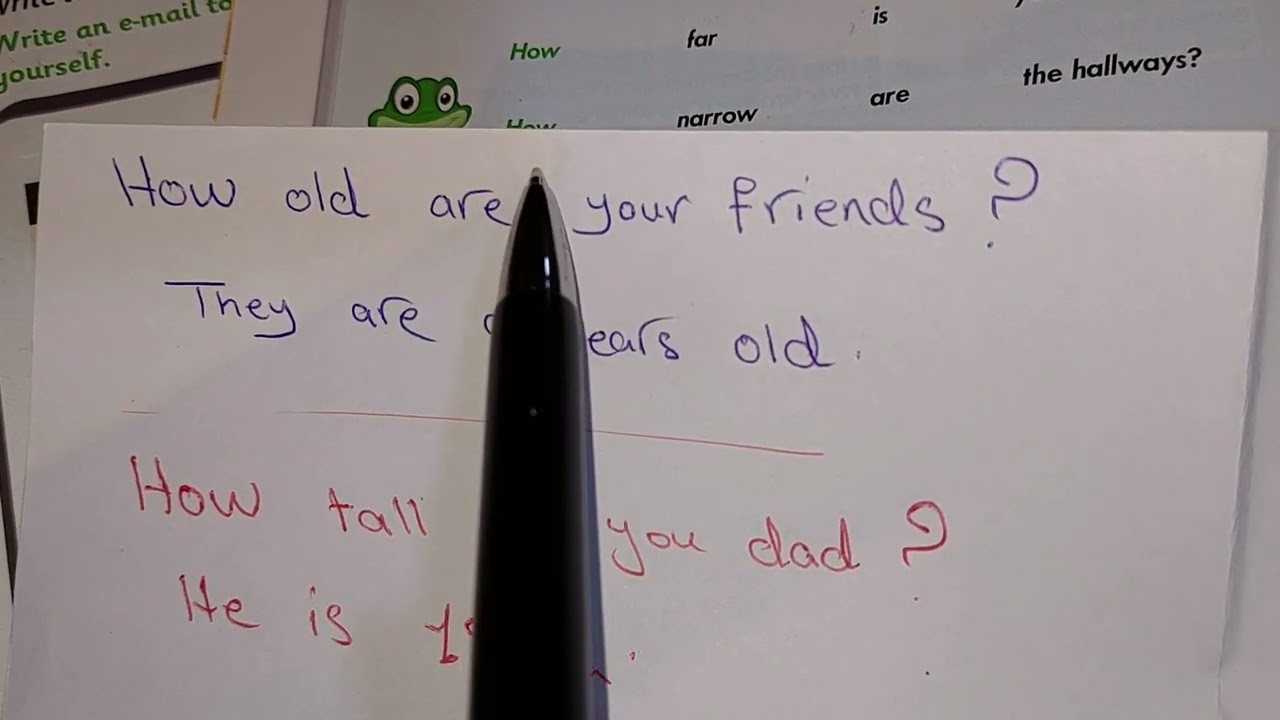 Write an e-mail to
yourself.
How far is
How narrow are the hallways?
How old are your friends?
They are ears old.
How tall you dad?
He is